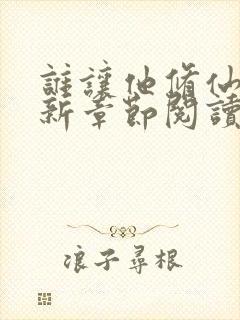 誰讓他修仙
新章節閱讀
浪子尋根